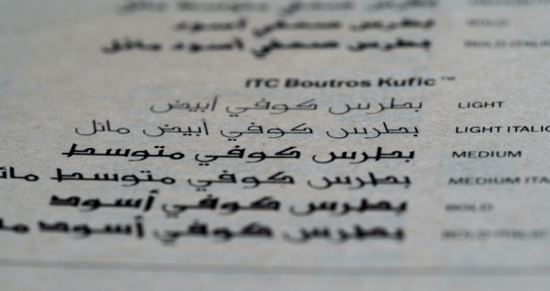 بطرس صحفي أسود
بطرس صحفي أسود مائل BOLD ITALIC
ITC Boutros Kufic™
بطرس كوفي أبيض LIGHT
بطرس كوفي أبيض مائل LIGHT ITALIC
بطرس كوفي متوسط MEDIUM
بطرس كوفي متوسط MEDIUM ITA
بطرس كوفي أسود BOLD
بطرس كوفي أسود BOLD ITALIC